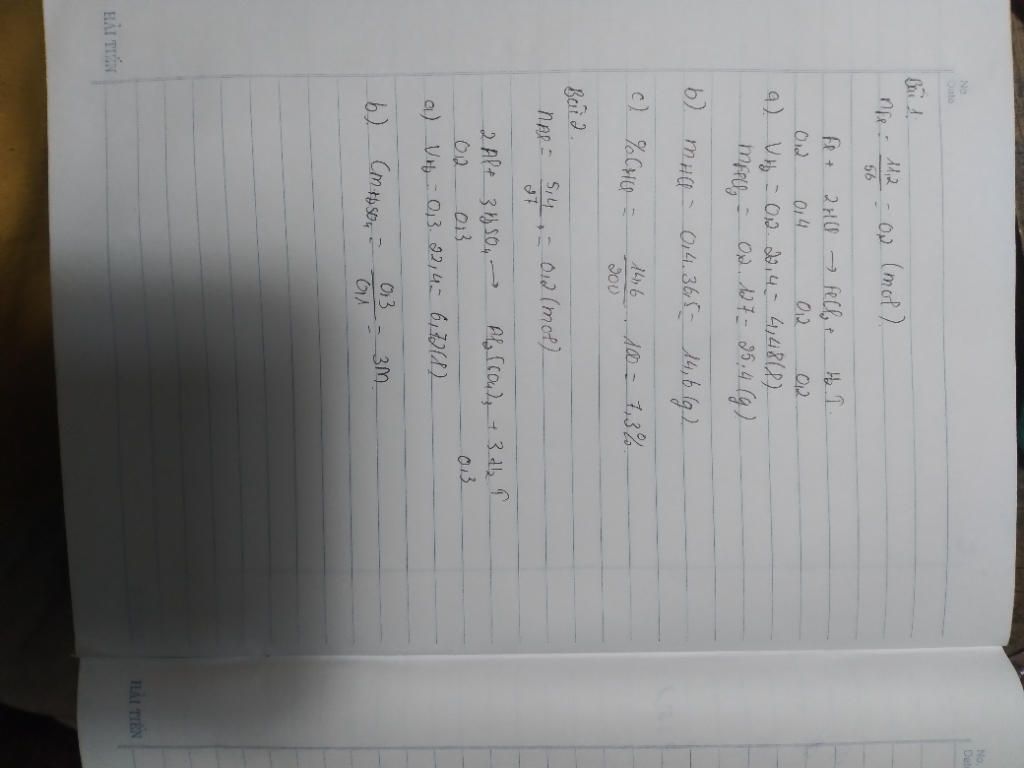 No.
Date
Bài 1.
nFe = 11,2/56 = 0,2 (mol).
Fe + 2HCl → FeCl2 + H2 ↑.
0,2 0,4 0,2 0,2
a) VH2 = 0,2. 22,4 = 4,48(l)
mFeCl2 = 0,2. 127 = 25,4 (g)
b) mHCl = 0,4. 36,5 = 14,6 (g).
c) %CHCl = 14,6/200 . 100 = 7,3%.
Bài 2.
nAl = 5,4/27 = 0,2 (mol)
2Al + 3H2SO4 → Al2(SO4)3 + 3H2 ↑
0,2 0,3 0,3
a) VH2 = 0,3. 22,4 = 6,72(l)
b) CmH2SO4 = 0,3/0,1 = 3M.
HẢI TIẾN
No.
Date
HẢI TIẾN